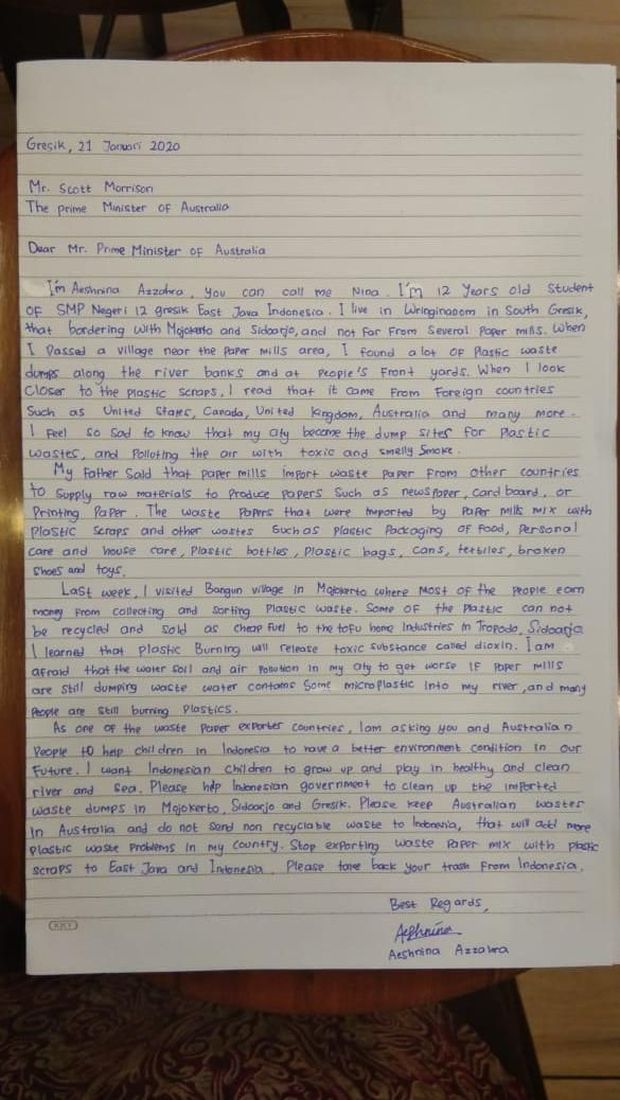 Gresik, 21 Januari 2020
Mr. Scott Morrison
The prime Minister of Australia
Dear Mr. Prime Minister of Australia
I'm Aeshnina Azzahra, You can call me Nina. I'm 12 Years old Student
of SMP Negeri 12 gresik East Java Indonesia. I live in Wringinanom in South Gresik,
that bordering with Mojokerto and Sidoarjo, and not far from several paper mills. When
I Passed a village near the Paper mills area, I found a lot of Plastic waste
dumps along the river banks and at people's front yards. When I look
Closer to the plastic scraps, I read that it came from Foreign countries
Such as United States, Canada, United Kingdom, Australia and many more.
I Feel so Sad to know that my city become the dump sites for Plastic
wastes, and Polloting the air with toxic and smelly Smoke.
My Father Said that paper mills import waste paper from other countries
to supply raw materials to Produce papers Such as newspaper, card board, or
Printing Paper. The waste Papers that were Imported by Paper mills mix with
Plastic Scraps and other wastes Such as Plastic Packaging of food, Personal
care and house care, Plastic bottles, Plastic bags, Cans, tertiles, broken
Shoes and toys.
Last week, I visited Bangun village in Mojokerto where most of the People earn
money from collecting and sorting Plastic waste. Some of the Plastic can not
be recycled and sold as cheap Fuel to the tofu home Industries in Tropodo, Sidoarjo
I learned that plastic Burning will release toxic substance called dioxin. I am
afraid that the water soil and air Pollution in my city to get worse IF Paper mills
are still dumping waste water contains Some microplastic into my river, and many
People are still burning Plastics.
As one of the waste Paper exporter countries, I am asking you and Australian
People to help children in Indonesia to have a better environment condition in our
Future. I want Indonesian Children to grow up and play in healthy and clean
river and Sea. Please help Indonesian government to clean up the imported
waste dumps in Mojokerto, Sidoarjo and Gresik. Please keep Australian wastes
In Australia and do not send non recyclable waste to Indonesia, that will add more
Plastic waste Problems in my country. Stop exporting waste Paper mix with plastic
scraps to East Java and Indonesia. Please take back your trash from Indonesia.
Best Regards,
Aeshnina
Aeshnina Azzahra